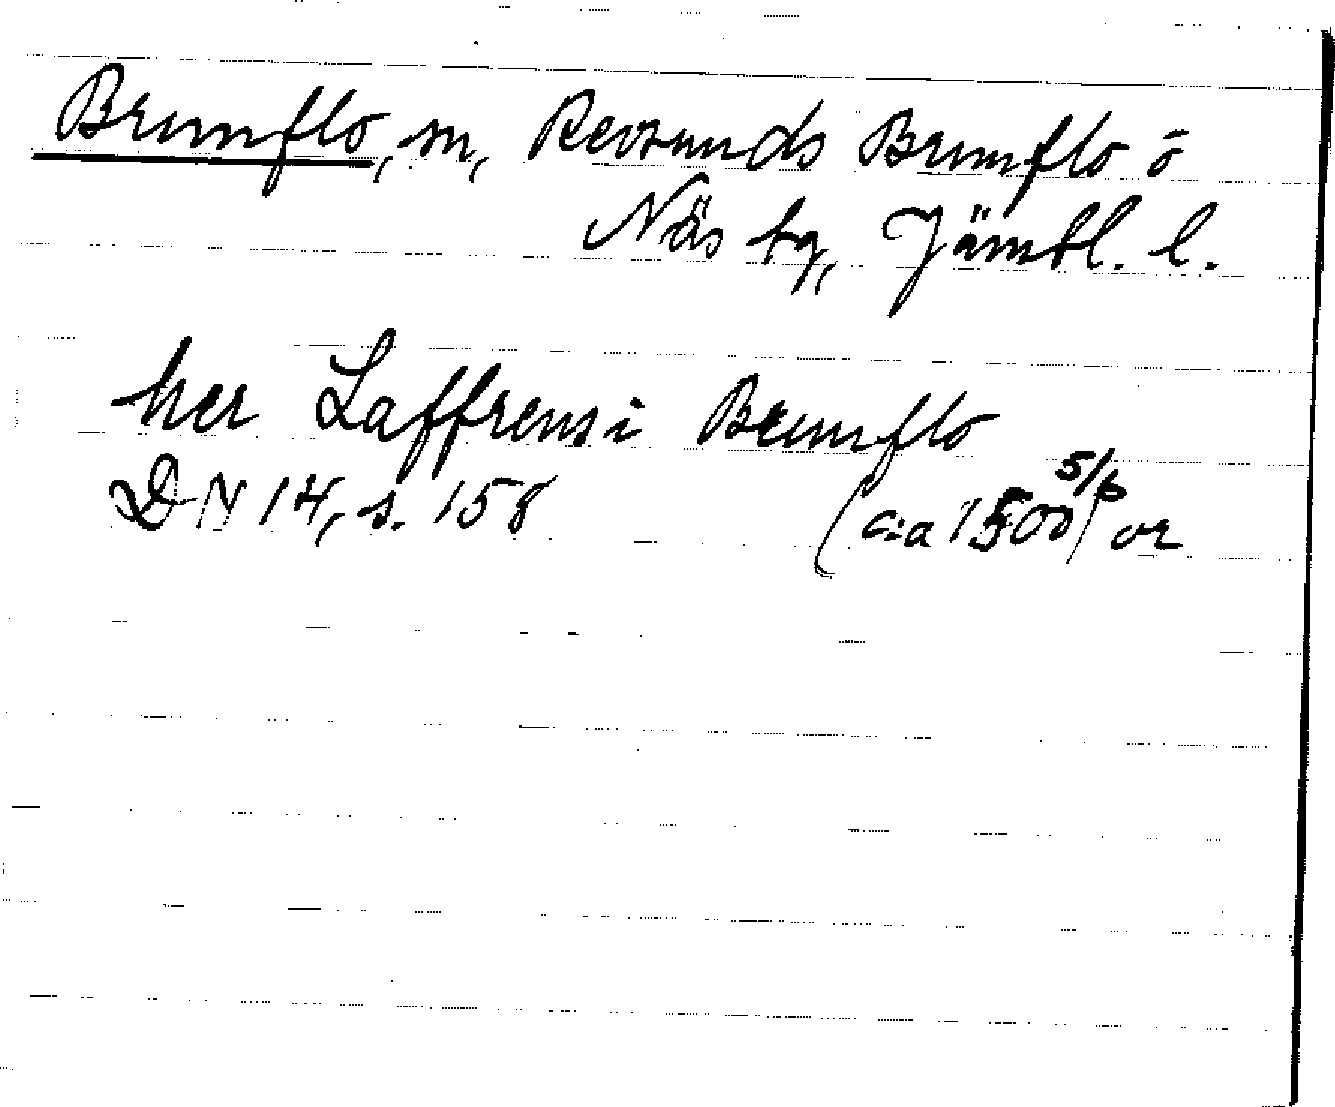 Brunflo, sn, Revsunds Brunflo o
Näs tg, Jämtl. l.
her Laffrens i Brunflo
DN 14, s. 158 (c:a 1500) 5/6 or